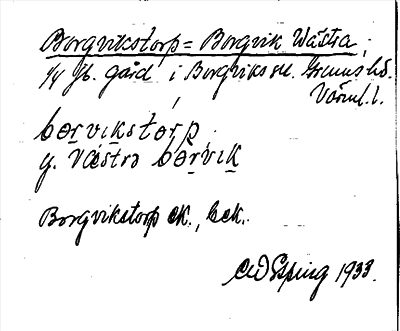 Borgvikstorp = Borgvik Wästra,
1/4 fb. gård i Borgviks sn. Grums hd.
Värml. l.
bɷrvikstɷrp,
y. västra bɷrvik
Borgvikstorp ek., bek.
CW Esping 1933.